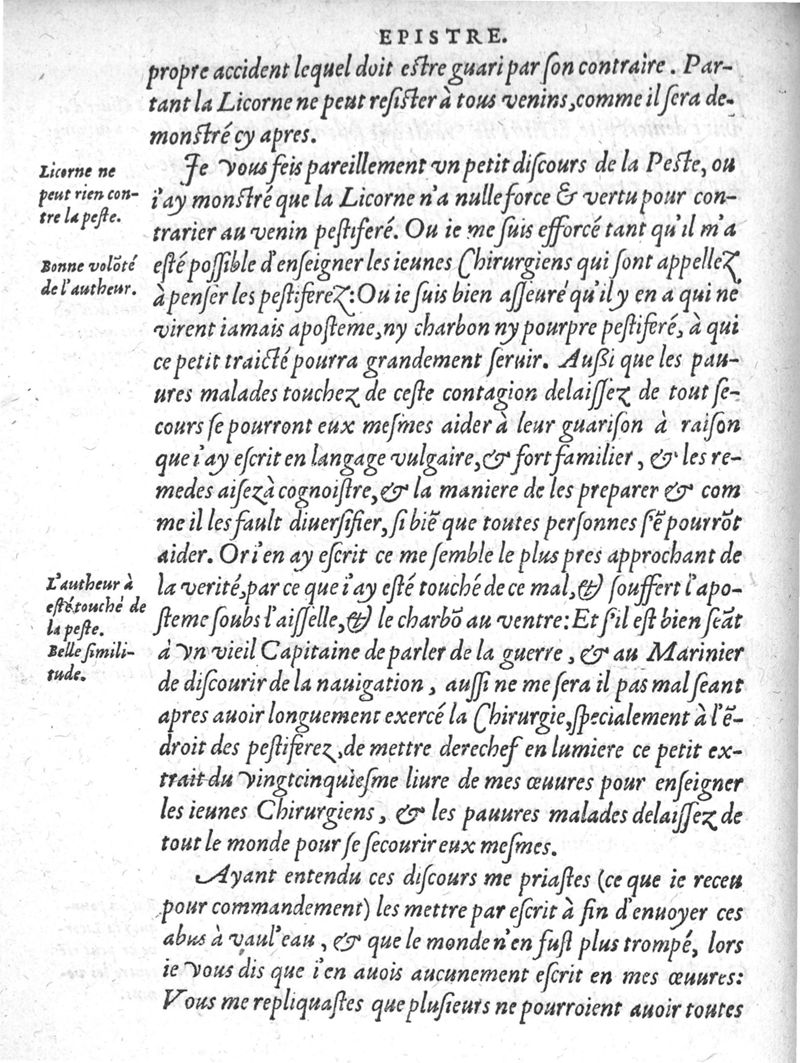 EPISTRE.
propre accident lequel doit eſtre guari par ſon contraire. Par-
tant la Licorne ne peut reſiſter à tous venins, comme il ſera de-
monſtré cy apres.
Licorne ne
peut rien con-
tre la peſte.
Je vous feis pareillement vn petit diſcours de la Peſte, ou
i'ay monſtré que la Licorne n'a nulle force & vertu pour con-
trarier au venin peſtiferé. Ou ie me ſuis efforcé tant qu'il m'a
Bonne volõté
de l'autheur.
eſté poſſible d'enſeigner les ieunes Chirurgiens qui ſont appellez
à penſer les peſtiferez: Ou ie ſuis bien aſſeuré qu'il y en a qui ne
virent iamais apoſteme, ny charbon ny pourpre peſtiferé, à qui
ce petit traicté pourra grandement ſeruir. Außi que les pau-
ures malades touchez de ceſte contagion delaiſſez de tout ſe-
cours ſe pourront eux meſmes aider à leur guariſon à raiſon
que i'ay eſcrit en langage vulgaire, & fort familier, & les re-
medes aiſez à cognoiſtre, & la maniere de les preparer & com
me il les fault diuerſifier, ſi biẽ que toutes perſonnes s'ẽ pourrõt
aider. Or i'en ay eſcrit ce me ſemble le plus pres approchant de
L'autheur à
eſté touché de
la peſte.
la verité, par ce que i'ay eſté touché de ce mal, & ſouffert l'apo-
ſteme ſoubs l'aiſſelle, & le charbõ au ventre: Et s'il eſt bien ſeãt
Belle ſimili-
tude.
à vn vieil Capitaine de parler de la guerre, & au Marinier
de diſcourir de la nauigation, auſſi ne me ſera il pas mal ſeant
apres auoir longuement exercé la Chirurgie, ſpecialement à l'ẽ-
droit des peſtiferez, de mettre derechef en lumiere ce petit ex-
trait du vingtcinquieſme liure de mes œuures pour enſeigner
les ieunes Chirurgiens, & les pauures malades delaiſſez de
tout le monde pour ſe ſecourir eux meſmes.
Ayant entendu ces diſcours me priaſtes (ce que ie receu
pour commandement) les mettre par eſcrit à fin d'enuoyer ces
abus à vaul'eau, & que le monde n'en fuſt plus trompé, lors
ie vous dis que i'en auois aucunement eſcrit en mes œuures:
Vous me repliquaſtes que pluſieurs ne pourroient auoir toutes